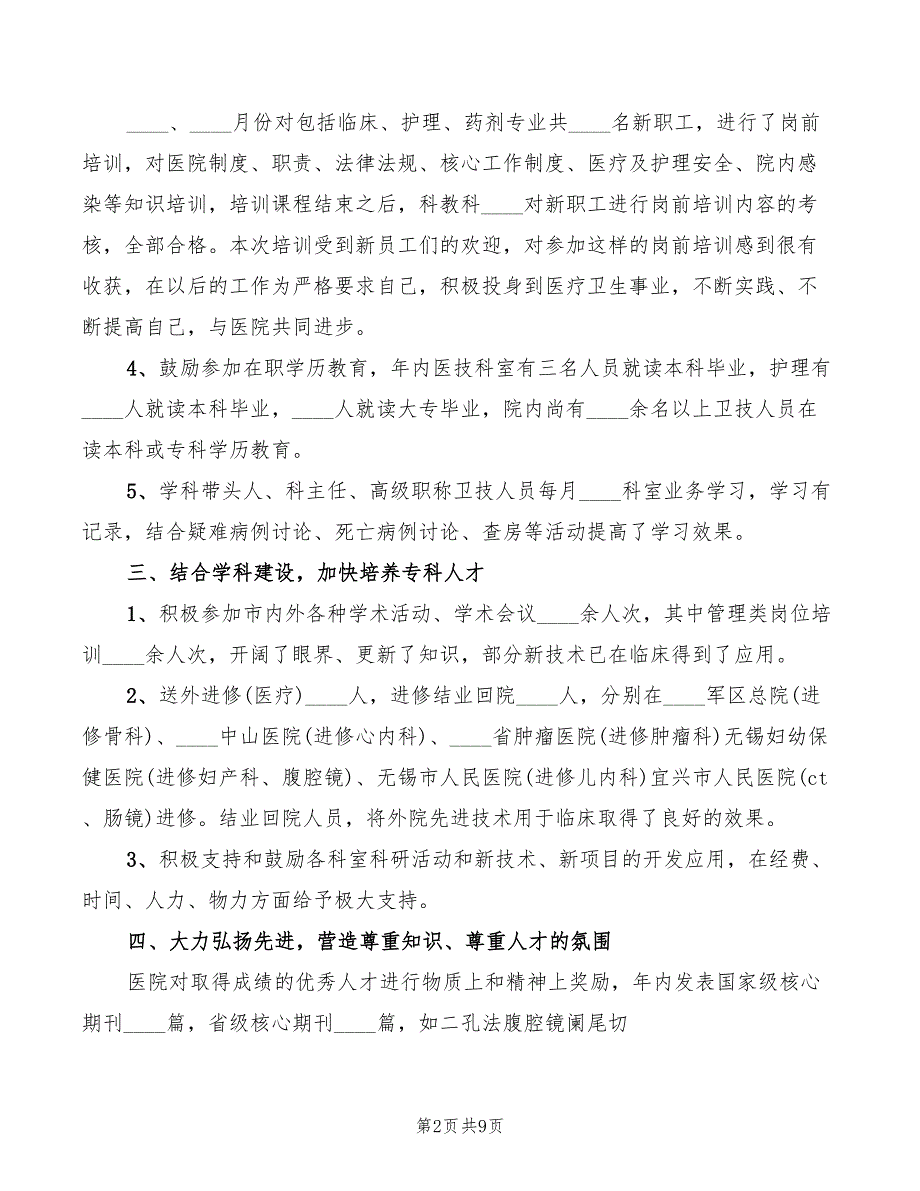 ____、____月份对包括临床、护理、药剂专业共____名新职工，进行了岗前
培训，对医院制度、职责、法律法规、核心工作制度、医疗及护理安全、院内感
染等知识培训，培训课程结束之后，科教科____对新职工进行岗前培训内容的考
核，全部合格。本次培训受到新员工们的欢迎，对参加这样的岗前培训感到很有
收获，在以后的工作为严格要求自己，积极投身到医疗卫生事业，不断实践、不
断提高自己，与医院共同进步。
4、鼓励参加在职学历教育，年内医技科室有三名人员就读本科毕业，护理有
____人就读本科毕业，____人就读大专毕业，院内尚有____余名以上卫技人员在
读本科或专科学历教育。
5、学科带头人、科主任、高级职称卫技人员每月____科室业务学习，学习有
记录，结合疑难病例讨论、死亡病例讨论、查房等活动提高了学习效果。
三、结合学科建设，加快培养专科人才
1、积极参加市内外各种学术活动、学术会议____余人次，其中管理类岗位培
训____余人次，开阔了眼界、更新了知识，部分新技术已在临床得到了应用。
2、送外进修(医疗)____人，进修结业回院____人，分别在____军区总院(进
修骨科)、____中山医院(进修心内科)、____省肿瘤医院(进修肿瘤科)无锡妇幼保
健医院(进修妇产科、腹腔镜)、无锡市人民医院(进修儿内科)宜兴市人民医院(ct
、肠镜)进修。结业回院人员，将外院先进技术用于临床取得了良好的效果。
3、积极支持和鼓励各科室科研活动和新技术、新项目的开发应用，在经费、
时间、人力、物力方面给予极大支持。
四、大力弘扬先进，营造尊重知识、尊重人才的氛围
医院对取得成绩的优秀人才进行物质上和精神上奖励，年内发表国家级核心
期刊____篇，省级核心期刊____篇，如二孔法腹腔镜阑尾切
第2页 共9页